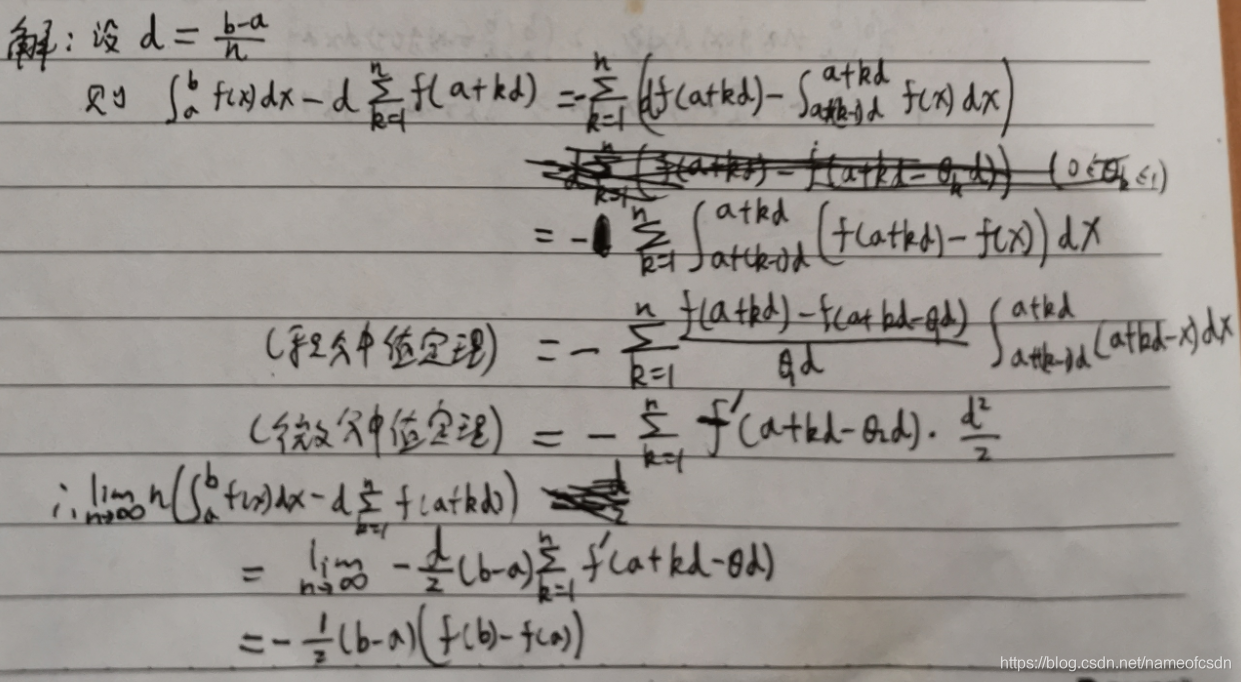 解：设 d = \frac{b-a}{n}
则 \int_a^b f(x)dx - d\sum_{k=1}^{n} f(a+kd) = -\sum_{k=1}^{n}\left(df(a+kd) - \int_{a+(k-1)d}^{a+kd} f(x)dx\right)
= -\sum_{k=1}^{n}\int_{a+(k-1)d}^{a+kd}\left(f(a+kd) - f(x)\right)dx
(积分中值定理) = -\sum_{k=1}^{n}\frac{f(a+kd) - f(a+kd-θ_1d)}{θ_1d}\int_{a+(k-1)d}^{a+kd}(a+kd-x)dx
(微分中值定理) = -\sum_{k=1}^{n} f'(a+kd-θ_2d)·\frac{d^2}{2}
∴ \lim_{n→∞} n\left(\int_a^b f(x)dx - d\sum_{k=1}^{n} f(a+kd)\right)
= \lim_{n→∞} -\frac{d}{2}(b-a)\sum_{k=1}^{n} f'(a+kd-θd)
= -\frac{1}{2}(b-a)\left(f(b)-f(a)\right)
https://blog.csdn.net/nameofcsdn